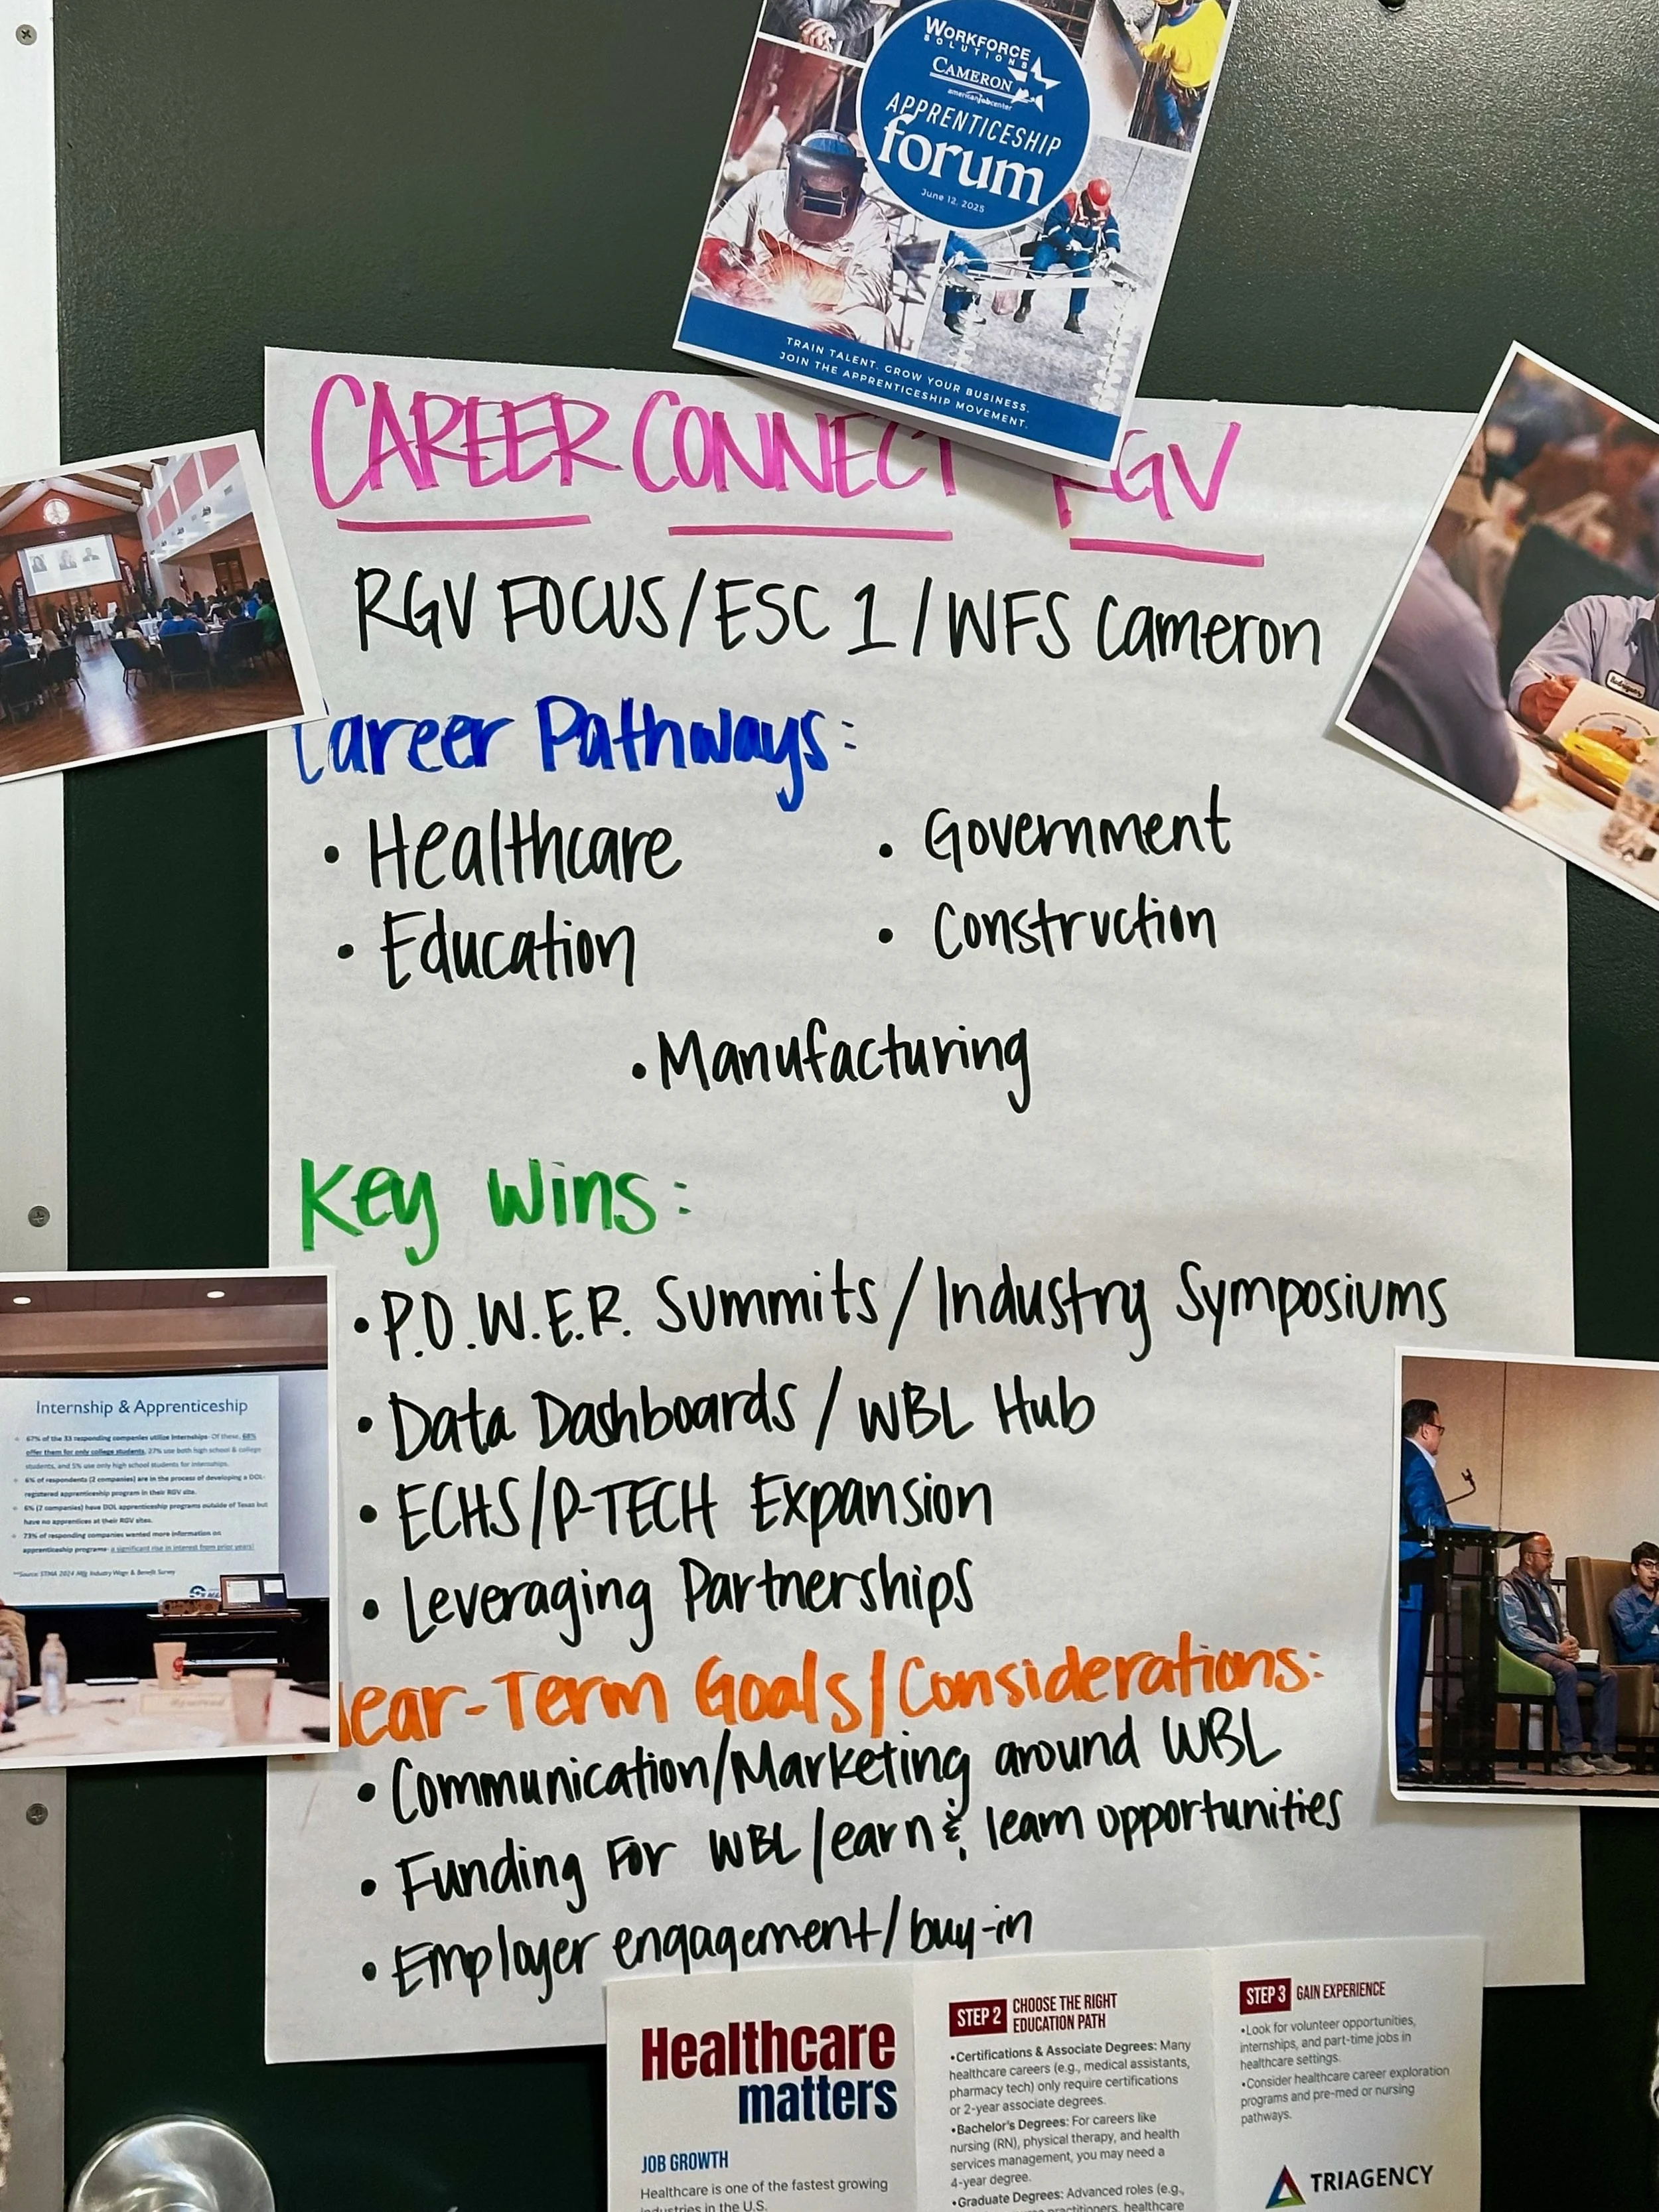 WORKFORCE
SOLUTIONS
CAMERON
americanjobcenter
APPRENTICESHIP
forum
June 12, 2025
TRAIN TALENT. GROW YOUR BUSINESS.
JOIN THE APPRENTICESHIP MOVEMENT.
CAREER CONNECT RGV
RGV FOCUS/ESC 1/WFS Cameron
Career Pathways:
• Healthcare
• Government
• Education
• Construction
• Manufacturing
Key Wins:
• P.O.W.E.R. Summits/Industry Symposiums
• Data Dashboards/WBL Hub
• ECHS/P-TECH Expansion
• Leveraging Partnerships
Near-Term Goals/Considerations:
• Communication/Marketing around WBL
• Funding For WBL/earn & learn opportunities
• Employer engagement/buy-in
Internship & Apprenticeship
67% of the 33 responding companies utilize internships. Of these, 68%
offer them for only college students, 27% use both high school & college
students, and 5% use only high school students for internships.
6% of respondents (2 companies) are in the process of developing a DOL-
registered apprenticeship program in their RGV site.
6% (2 companies) have DOL apprenticeship programs outside of Texas but
have no apprentices at their RGV sites.
73% of responding companies wanted more information on
apprenticeship programs- a significant rise in interest from prior years!
**Source STMA 2024 Mfg Industry Wage & Benefit Survey
Rodriguez
Healthcare
matters
JOB GROWTH
Healthcare is one of the fastest growing
industries in the U.S.
STEP 2 CHOOSE THE RIGHT
EDUCATION PATH
•Certifications & Associate Degrees: Many
healthcare careers (e.g., medical assistants,
pharmacy tech) only require certifications
or 2-year associate degrees.
•Bachelor's Degrees: For careers like
nursing (RN), physical therapy, and health
services management, you may need a
4-year degree.
•Graduate Degrees: Advanced roles (e.g.,
practitioners, healthcare
STEP 3 GAIN EXPERIENCE
•Look for volunteer opportunities,
internships, and part-time jobs in
healthcare settings.
•Consider healthcare career exploration
programs and pre-med or nursing
pathways.
TRIAGENCY